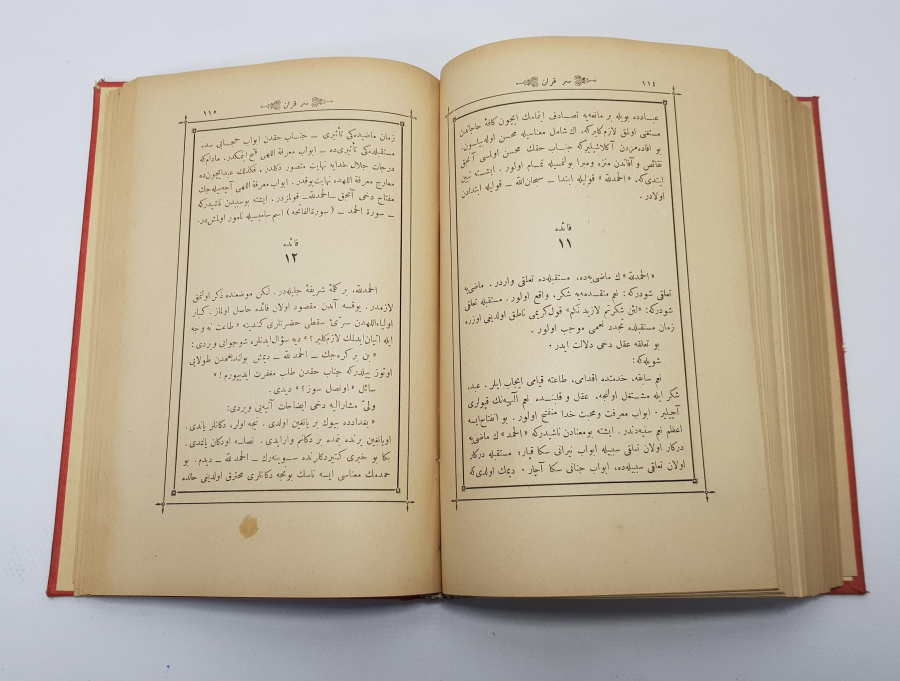 ١١٤
سر قران
عباده‌ده بویله بر مانعه‌یه تصادف ایتمامك ایچون كافهٔ حاجاتدن
مستغنی اولمق لازمكلیركه، اك شامل معناسیله محسن اوله‌بیلسون.
بو افاده‌مزدن آكلاشیلیركه جناب حقك محسن اولمسی آنجق
نقائص و آفاتدن منزه ومبرا بولنمسیله تمام اولور. ایشته بنین
ابتدی‌كه، «الحمدلله» قولیله ابتدا ـ سبحان‌الله ـ قولیله ابتدادن
اولادر.
فائده
١١
«الحمدلله» ك ماضی‌یه‌ده، مستقبله‌ده تعلقی واردر. ماضی‌یه
تعلقی شودركه: نعم متقدمه‌یه شكر، واقع اولور. مستقبله تعلقی
شودركه: «لئن شكرتم لازیدنكم» قول كریمی ناطق اولدیغی اوزره
زمان مستقبلده تجدد نعمی موجب اولور.
بو تعلقه عقل دخی دلالت ایدر.
شویله‌كه:
نعم سابقه، خدمتده اقدامی، طاعته قیامی ایجاب ایلر. عبد،
شكر ایله مشتغل اولنجه، عقل و قلبنده نعم آلهیه‌نك قپولری
آچیلیر. ابواب معرفت ومحبت خدا منفتح اولور. بو انفتاح ایسه
اعظم نعم سنیه‌دندر. ایشته بومعنادن ناشیدركه «الحمد» ك ماضی‌یه
دركار اولان تعلقی سببیله ابواب نیرانی سكا قپار، مستقبله دركار
اولان تعلقی سببیله‌ده، ابواب جنانی سكا آچار. دیمك اولدی‌كه
١١٥
سر قران
زمان ماضیده‌كی تأثیری ـ جناب حقدن ابواب حجابی سد،
مستقبلده‌كی تأثیری‌ده ـ ابواب معرفة اللهی فتح ایتمكدر. مادام‌كه
درجات جلال خدایه نهایت متصور دكلدر، فكذلك عبدایچون‌ده
معارج معرفة اللهده نهایت یوقدر. ابواب معرفة اللهی آچه‌بیله‌جك
مفتاح دخی آنجق ـ الحمدلله ـ قولمزدر. ایشته بوسببدن ناشیدركه
ـ سورة الحمد ـ (سورة الفاتحه) اسم سامیسیله نامور اولمش‌در.
فائده
١٢
الحمدلله، بر كلمهٔ شریفهٔ جلیله‌در. لكن موضعنده ذكر اولنمق
لازمدر. یوقسه آندن مقصود اولان فائده حاصل اولماز. كبار
اولیاءاللهدن سرئ سقطی حضرتلری كندینه «طاعت نه وجه
ایله اتیان ایدلمك لازم‌كلیر؟» دیه سؤال ایدنلره شوجوابی ویردی:
«بن بر كره‌جك ـ الحمدلله ـ دیمش بولندیغمدن طولایی
اوتوز ییلدركه جناب حقدن طلب مغفرت ایدییورم!»
سائل «او نصل سوز؟» دیدی.
ولئ مشارالیه دخی ایضاحات آتیه‌یی ویردی:
«بغدادده بیوك بر یانغین اولدی. نیجه اولر، دكانلر یاندی.
اویانغین یرنده بنمده بر دكانم وارایدی. نصلسه اودكان یانمدی.
بكا بو خبری كتیردكلرنده سوینه‌رك ـ الحمدلله ـ دیدم. بو
حمدمك معناسی ایسه ناسك بونجه دكانلری محترق اولدیغی حالده